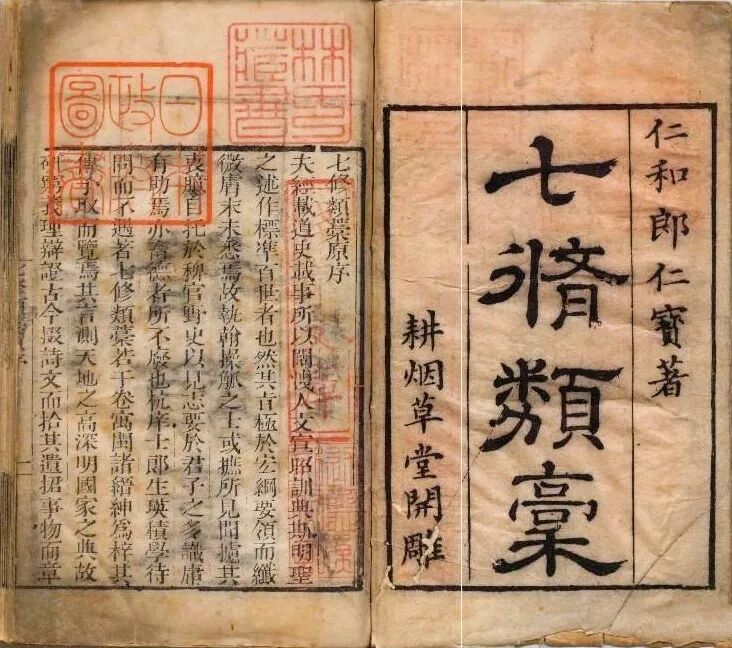 仁和郎仁寶著
七脩類稾
耕烟草堂開雕
七修類藁原序
夫經載道史載事所以闡洩人文宣昭訓典斯明聖
之述作標準百世者也然其旨極於宏綱要領而纖
微屑末未悉焉故執翰操觚之士或摭所見聞攄其
衷臆自托於稗官野史以見志要於君子之多識庸
有助焉亦畜德者所不廢也杭庠士郎生瑛積學待
問而不遇著七修類藁若干卷寓閩諸縉紳為梓其
傳予取而覽焉其旨測天地之高深明國家之典故
研窮義理辯證古今掇詩文而拾其遺捃事物而章